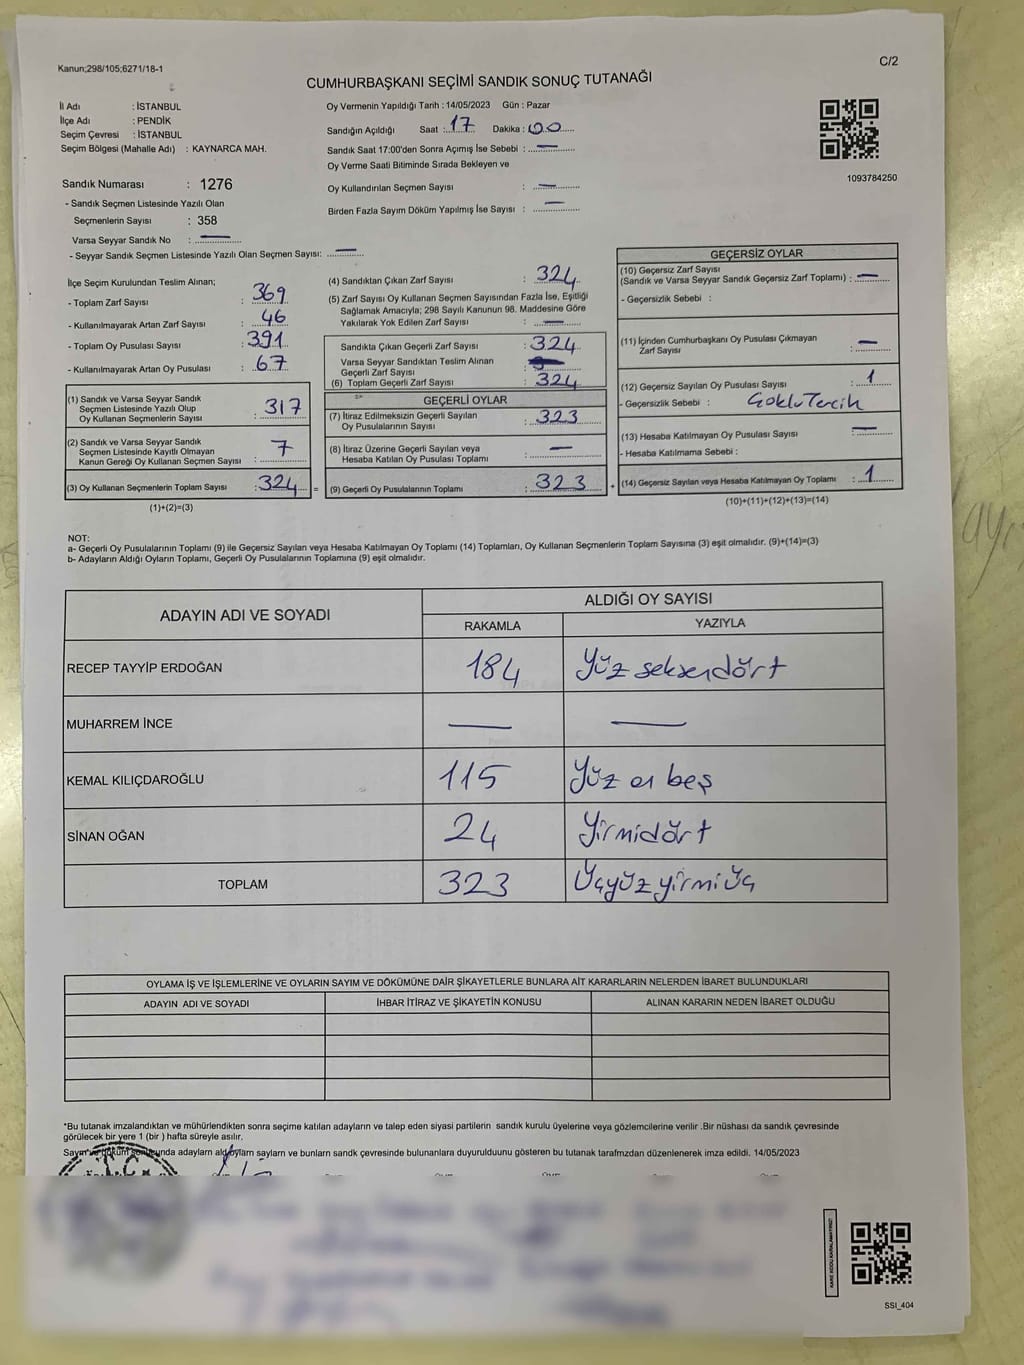 Kanun;298/105;6271/18-1
C/2
CUMHURBAŞKANI SEÇİMİ SANDIK SONUÇ TUTANAĞI
İl Adı : İSTANBUL
İlçe Adı : PENDİK
Seçim Çevresi : İSTANBUL
Seçim Bölgesi (Mahalle Adı) : KAYNARCA MAH.
Oy Vermenin Yapıldığı Tarih : 14/05/2023 Gün : Pazar
Sandığın Açıldığı Saat : 17 Dakika : 00
Sandık Saat 17:00'den Sonra Açımış İse Sebebi : —
Oy Verme Saati Bitiminde Sırada Bekleyen ve
Oy Kullandırılan Seçmen Sayısı : —
Birden Fazla Sayım Döküm Yapılmış İse Sayısı : —
1093784250
Sandık Numarası : 1276
- Sandık Seçmen Listesinde Yazılı Olan
Seçmenlerin Sayısı : 358
Varsa Seyyar Sandık No : —
- Seyyar Sandık Seçmen Listesinde Yazılı Olan Seçmen Sayısı: —
İlçe Seçim Kurulundan Teslim Alınan;
- Toplam Zarf Sayısı : 369
- Kullanılmayarak Artan Zarf Sayısı : 46
- Toplam Oy Pusulası Sayısı : 391
- Kullanılmayarak Artan Oy Pusulası : 67
(1) Sandık ve Varsa Seyyar Sandık
Seçmen Listesinde Yazılı Olup
Oy Kullanan Seçmenlerin Sayısı : 317
(2) Sandık ve Varsa Seyyar Sandık
Seçmen Listesinde Kayıtlı Olmayan
Kanun Gereği Oy Kullanan Seçmen Sayısı : 7
(3) Oy Kullanan Seçmenlerin Toplam Sayısı : 324 =
(1)+(2)=(3)
(4) Sandıktan Çıkan Zarf Sayısı : 324
(5) Zarf Sayısı Oy Kullanan Seçmen Sayısından Fazla İse, Eşitliği
Sağlamak Amacıyla; 298 Sayılı Kanunun 98. Maddesine Göre
Yakılarak Yok Edilen Zarf Sayısı : —
Sandıkta Çıkan Geçerli Zarf Sayısı : 324
Varsa Seyyar Sandıktan Teslim Alınan
Geçerli Zarf Sayısı :
(6) Toplam Geçerli Zarf Sayısı : 324
GEÇERLİ OYLAR
(7) İtiraz Edilmeksizin Geçerli Sayılan
Oy Pusulalarının Sayısı : 323
(8) İtiraz Üzerine Geçerli Sayılan veya
Hesaba Katılan Oy Pusulası Toplamı : —
(9) Geçerli Oy Pusulalarının Toplamı : 323 +
GEÇERSİZ OYLAR
(10) Geçersiz Zarf Sayısı
(Sandık ve Varsa Seyyar Sandık Geçersiz Zarf Toplamı) : —
- Geçersizlik Sebebi :
(11) İçinden Cumhurbaşkanı Oy Pusulası Çıkmayan
Zarf Sayısı : —
(12) Geçersiz Sayılan Oy Pusulası Sayısı : 1
- Geçersizlik Sebebi : Çoklu Tercih
(13) Hesaba Katılmayan Oy Pusulası Sayısı : —
- Hesaba Katılmama Sebebi :
(14) Geçersiz Sayılan veya Hesaba Katılmayan Oy Toplamı : 1
(10)+(11)+(12)+(13)=(14)
NOT:
a- Geçerli Oy Pusulalarının Toplamı (9) ile Geçersiz Sayılan veya Hesaba Katılmayan Oy Toplamı (14) Toplamları, Oy Kullanan Seçmenlerin Toplam Sayısına (3) eşit olmalıdır. (9)+(14)=(3)
b- Adayların Aldığı Oyların Toplamı, Geçerli Oy Pusulalarının Toplamına (9) eşit olmalıdır.
ADAYIN ADI VE SOYADI
ALDIĞI OY SAYISI
RAKAMLA YAZIYLA
RECEP TAYYİP ERDOĞAN 184 Yüz seksendört
MUHARREM İNCE — —
KEMAL KILIÇDAROĞLU 115 Yüz on beş
SİNAN OĞAN 24 Yirmidört
TOPLAM 323 Üçyüz yirmi üç
OYLAMA İŞ VE İŞLEMLERİNE VE OYLARIN SAYIM VE DÖKÜMÜNE DAİR ŞİKAYETLERLE BUNLARA AİT KARARLARIN NELERDEN İBARET BULUNDUKLARI
ADAYIN ADI VE SOYADI İHBAR İTİRAZ VE ŞİKAYETİN KONUSU ALINAN KARARIN NEDEN İBARET OLDUĞU
*Bu tutanak imzalandıktan ve mühürlendikten sonra seçime katılan adayların ve talep eden siyasi partilerin sandık kurulu üyelerine veya gözlemcilerine verilir .Bir nüshası da sandık çevresinde
görülecek bir yere 1 (bir ) hafta süreyle asılır.
adayların oyların sayların ve bunların sandk çevresinde bulunanlara duyurulduunu gösteren bu tutanak tarafmzdan düzenlenerek imza edildi. 14/05/2023
T.C.
KARE KODU KARALAMAYINIZ!
SSI_404